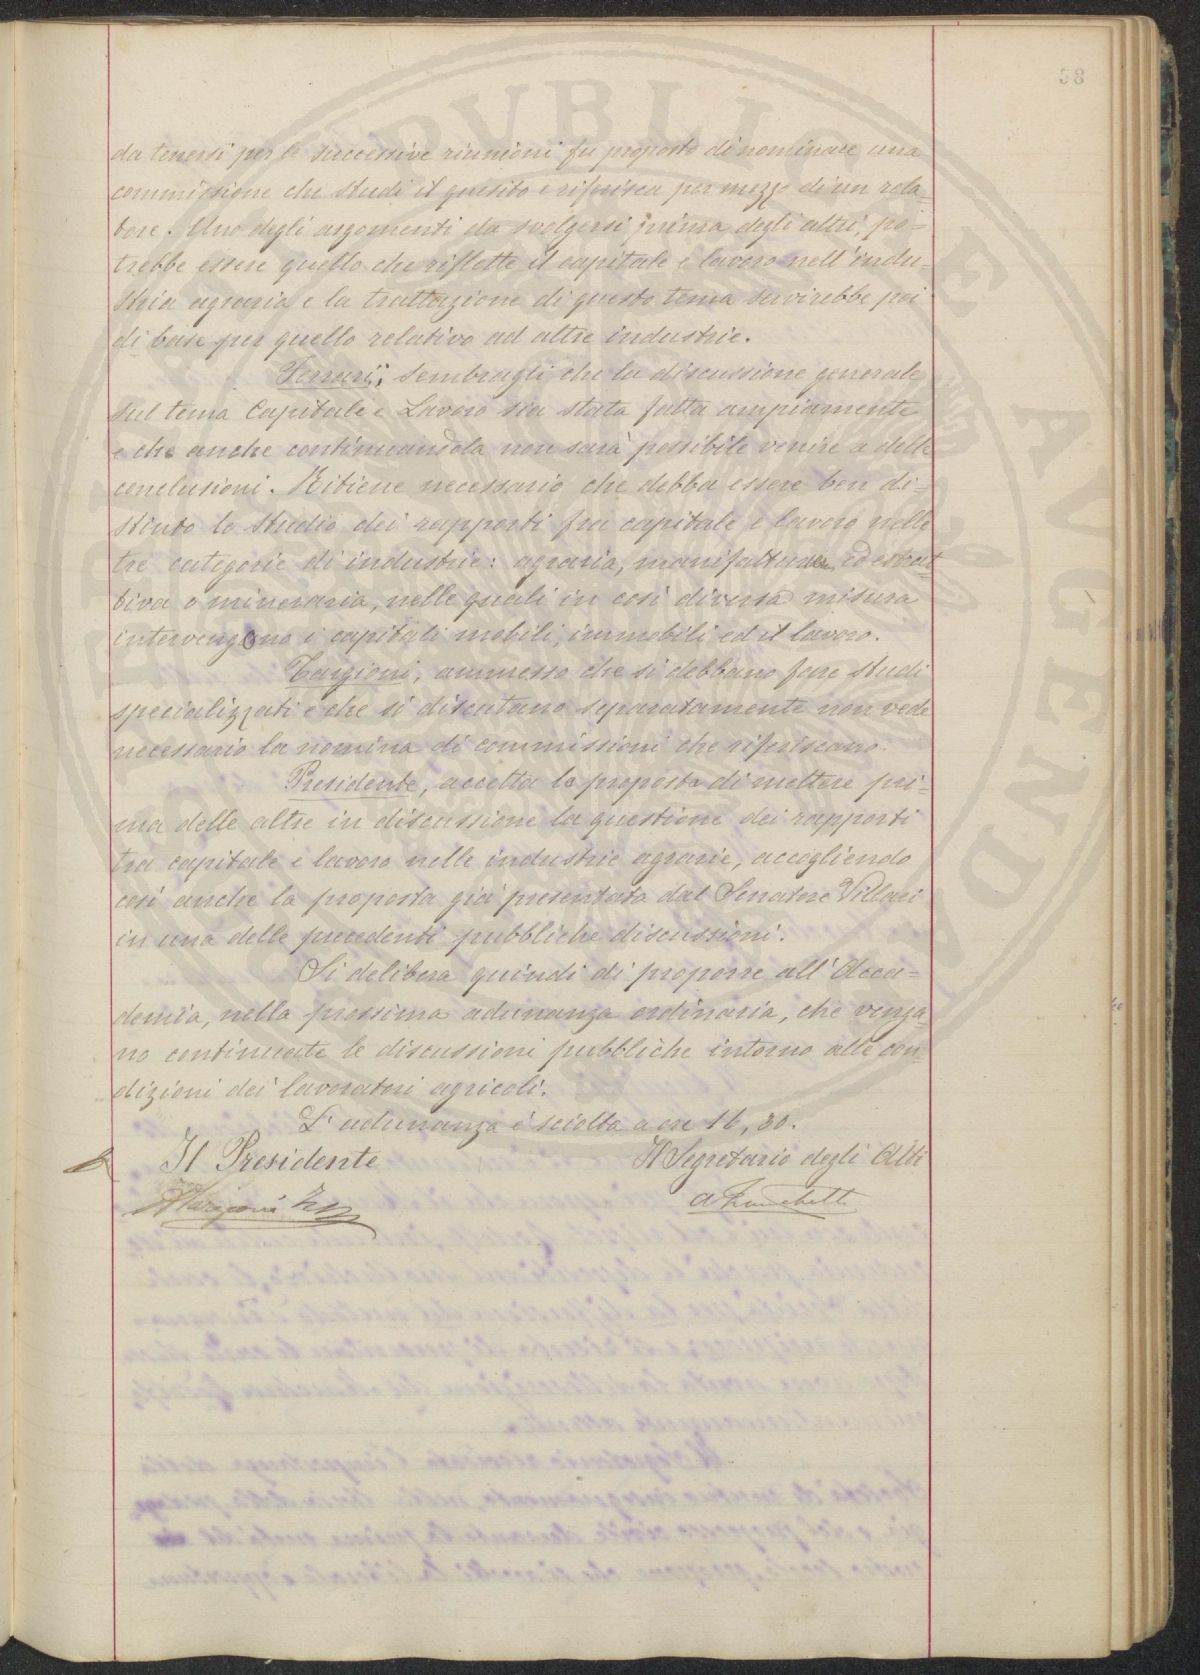 58
da tenersi per le successive riunioni fu proposto di nominare una
commissione che studi il quesito e riferisca per mezzo di un rela-
tore. Uno degli argomenti da svolgersi prima degli altri, po-
trebbe essere quello che riflette il capitale e lavoro nell'indu-
stria agraria e la trattazione di questo tema servirebbe poi
di base per quello relativo ad altre industrie.
Ferrari, sembragli che la discussione generale
sul tema Capitale e Lavoro sia stata fatta ampiamente
e che anche continuandola non sarà possibile venire a delle
conclusioni. Ritiene necessario che debba essere ben di-
stinto lo studio dei rapporti fra capitale e lavoro nelle
tre categorie di industrie: agraria, manifatturiera, ed estrat
tiva o mineraria, nelle quali in così diversa misura
intervengono i capitali mobili, immobili ed il lavoro.
Targioni, ammesso che si debbano fare studi
specializzati e che si discutano separatamente non vede
necessario la nomina di commissioni che riferiscano.
Presidente, accetta la proposta di mettere pri-
ma delle altre in discussione la questione dei rapporti
tra capitale e lavoro nelle industrie agrarie, accogliendo
così anche la proposta già presentata dal Senatore Villari
in una delle precedenti pubbliche discussioni.
Si delibera quindi di proporre all'Acca=
demia, nella prossima adunanza ordinaria, che venga-
no continuate le discussioni pubbliche intorno alle con-
dizioni dei lavoratori agricoli.
L'adunanza è sciolta a ore 16,30.
Il Presidente Il Segretario degli Atti
A Targioni Tozz A Franchetti
PVBLICAE AVGENDAE